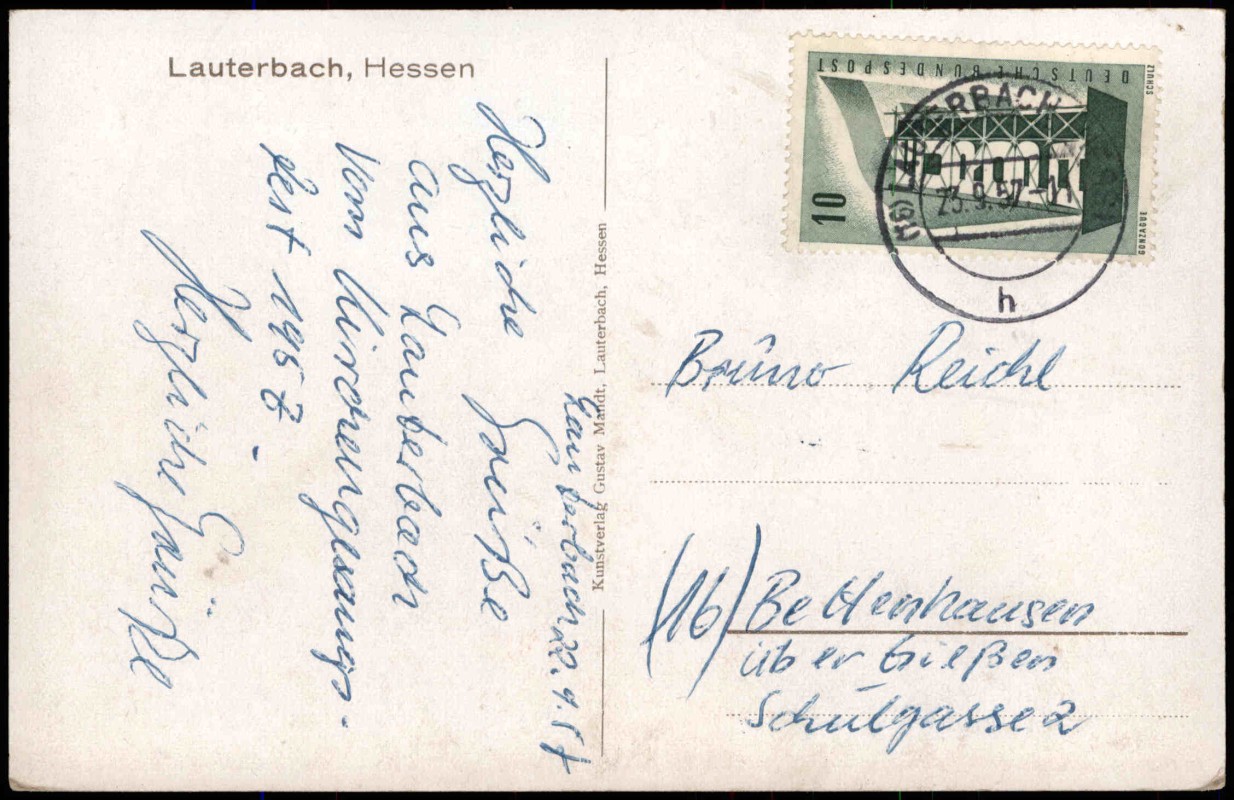 Lauterbach, Hessen
Lauterbach 22.9.57
Herzliche Grüße
aus Lauterbach
vom Kirchengesangs-
fest 1957
Herzliche Grüße
Kunstverlag Gustav Mandt, Lauterbach, Hessen
DEUTSCHE BUNDESPOST
10
SCHULZ
GONZAGUE
(16) LAUTERBACH
23.9.57.-11
h
Bruno Reichl
(16) Bettenhausen
über Gießen
Schulgasse 2